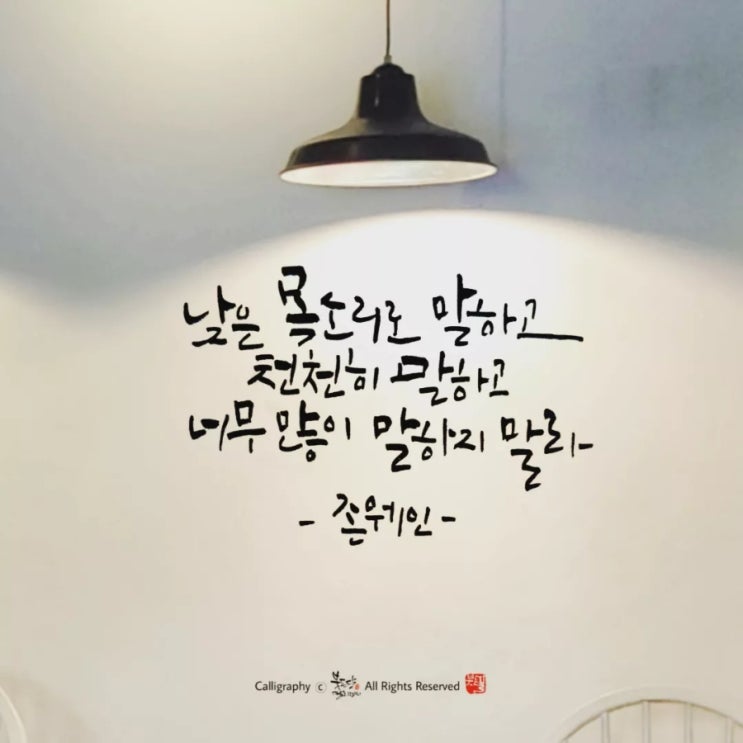 낮은 목소리로 말하고
천천히 말하고
너무 많이 말하지 말라
- 존웨인 -
Calligraphy ⓒ All Rights Reserved